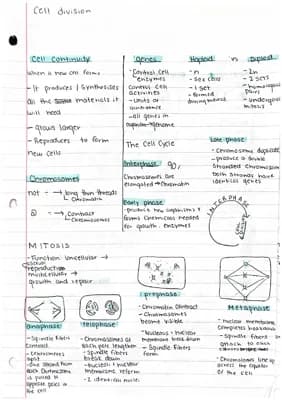 Cell division
Cell Continuity
When a new cell forms
- It produces / synthesises
all the materials it
will need
- Grows larger
- Reproduces to form
new cells
Chromosomes
not - → long thin threads
Chromatin
→ Contract
Chromosomes
Genes
- Control cell
enzymes
Control cell
activities
- Units of
inheritance
- all genes in
Haploid
- n
- Sex cells
- 1 set
- formed
during meiosis
Diploid
- 2n
- 2 sets
- homologous
pairs
- undergoes
mitosis
The Cell Cycle
Interphase 90%
Chromosomes are
elongated → Chromatin
Early phase
- produce new organelles +
forms chemicals needed
for growth. enzymes
Late phase
- Chromosome duplicate
- produce a double
stranded chromosome
both strands have
identical genes
INTERPHASE
MITOSIS
- Function: Unicellular →
asexual
reproduction
multicellular →
growth and repair
Prophase
- Chromatin contract
- Chromosomes
become visible
- Nucleolus + nuclear
membrane break down
- Spindle fibers
form
Metaphase
- nuclear membrane
completes breakdown
- Spindle fibers
attach to
- Chromosomes line up
across the equator
of the cell
Anaphase
- Spindle fibers
contract
- Centromeres
split
- One strand from
each chromosome
is pulled to
opposite poles in
the cell
Telophase
- Chromosomes at
each pole lengthen
- Spindle fibers
break down
- nucleoli + nuclear
membranes reform
- 2 identical nuclei